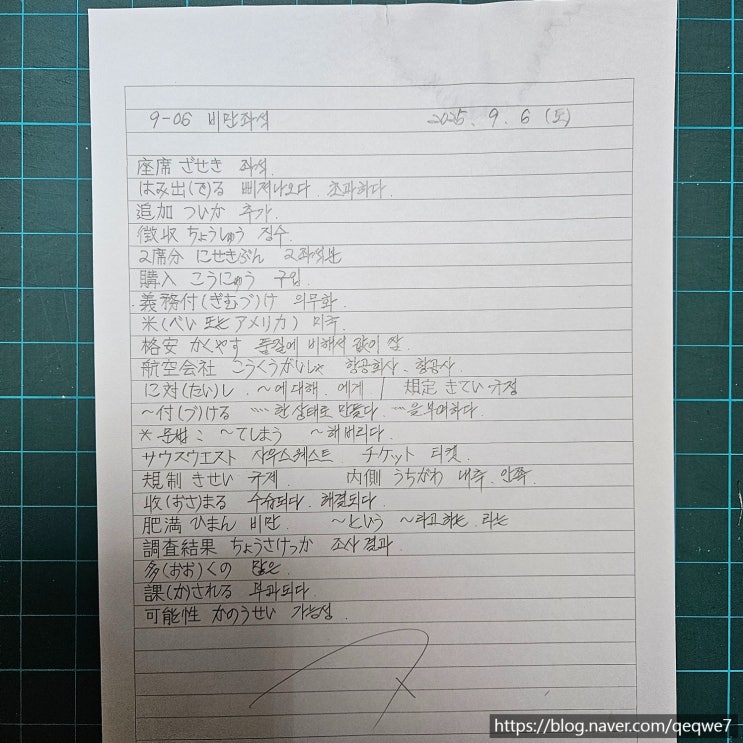 9-06 비만좌석 2025. 9. 6 (토)
座席 ざせき 좌석.
はみ出(で)る 삐져나오다. 초과하다.
追加 ついか 추가.
徴収 ちょうしゅう 징수.
2席分 にせきぶん 2좌석분
購入 こうにゅう 구입.
義務付(ぎむづ)け 의무화.
米(べい 또는 アメリカ) 미국.
格安 かくやす 품질에 비해서 값이 쌈.
航空会社 こうくうがいしゃ 항공회사. 항공사.
に対(たい)し. ~에 대해. 에게 / 規定 きてい 규정
~付(づ)ける …… 한 상태로 만들다. …을 부여하다.
* 문법 : ~てしまう ~해 버리다.
サウスウエスト 사우스웨스트. チケット 티켓.
規制 きせい 규제. 内側 うちがわ 내측. 안쪽.
収(おさ)まる 수습되다. 해결되다.
肥満 ひまん 비만. ~という ~라고 하는. 라는
調査結果 ちょうさけっか 조사 결과.
多(おお)くの 많은
課(か)される 부과되다.
可能性 かのうせい 가능성.
https://blog.naver.com/qeqwe7